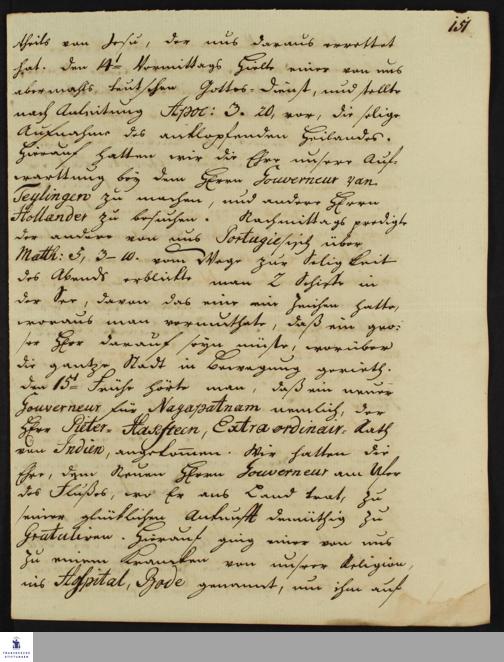 151
theils von Jesu, der uns daraus errettet
hat. Den 14t. Vormittags hielte einer von uns
abermahls teutschen Gottes-Dienst, und stellte
nach Anleitung Apoc: 3. 20, vor, die selige
Aufnahme des anklopfenden Heilandes.
Hierauf hatten wir die Ehre unsere Auf-
wartung bey dem Herrn Gouverneur van
Teylingen zu machen, und andere Herrn
Hollander zu besuchen. Nachmittags predigte
der andere von uns Portugiesisch über
Matth: 5, 3-10. vom Wege zur Seligkeit
des Abends erblickte man 2 Schiffe in
der See, davon das eine ein Zeichen hatte,
woraus man vermuthete, daß ein gro-
ser Herr darauf seyn müste, worüber
die gantze Stadt in Bewegung gerieth.
den 15t. Frühe hörte man, daß ein neuer
Gouverneur für Nagapatnam nemlich, der
Herr Pieter Haksteen, Extraordinair Rath
von Indien, angekommen. Wir hatten die
Ehre, dem Neuen Herrn Gouverneur am Ufer
des Flußes, wo Er ans Land trat, zu
seiner glücklichen Ankunfft demüthig zu
Gratuliren. Hierauf ging einer von uns
zu einem Krancken von unserer Religion,
ins Hospital, Bode genannt, um ihm auf
FRANCKESCHE
STIFTUNGEN